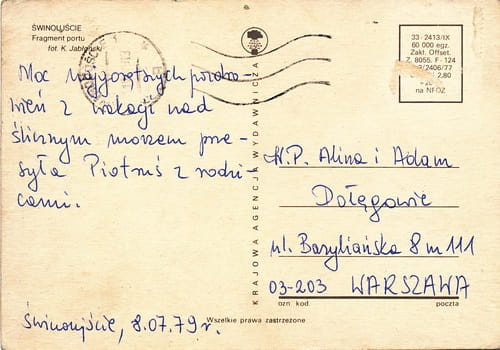 ŚWINOUJŚCIE
Fragment portu
fot. K. Jabłoński
Moc najgorętszych pozdro-
wień z wakacji nad
ślicznym morzem prze-
syła Piotruś z rodzi-
cami.
Świnoujście, 8.07.79 r.
KRAJOWA AGENCJA WYDAWNICZA
Wszelkie prawa zastrzeżone
33-2413/IX
60 000 egz.
Zakł. Offset.
Z. 8055. F-124
2406/77
2,80
na NFOZ
W.P. Alina i Adam
Dołęgowie
ul. Bazyliańska 8 m 111
03-203 WARSZAWA
ozn. kod. poczta